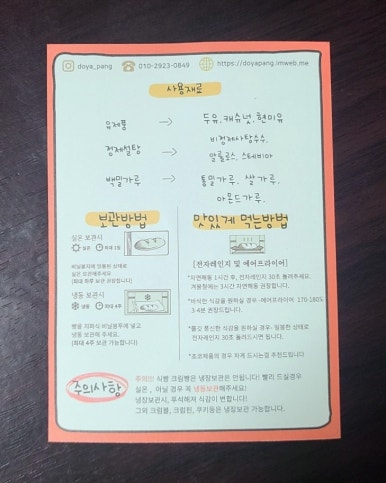 doya_pang 010-2923-0849 https://doyapang.imweb.me
사용재료
유제품 → 두유, 캐슈넛, 현미유
정제설탕 → 비정제사탕수수,
알룰로스, 스테비아
백밀가루 → 통밀가루, 쌀가루,
아몬드가루
보관방법
실온 보관시
실온 최대 1일
비닐봉지에 밀봉한 상태로
실온 보관해주세요
(최대 하루 보관 권장합니다)
냉동 보관시
냉동 최대 4주
빵을 의 비닐봉투에 넣고
냉동 보관해 주세요.
(최대 4주 보관 가능합니다)
맛있게 먹는방법
[전자레인지 및 에어프라이어]
*자연해동 1시간 후, 전자레인지 30초 돌려주세요.
겨울철에는 3시간 자연해동 권장합니다.
*바삭한 식감을 원하실 경우 -에어프라이어 170-180%
3-4분 권장드립니다.
*쫄깃 퐁신한 식감을 원하실 경우- 밀봉한 상태로
전자레인지 30초 돌려드시면 됩니다.
*초코제품의 경우 차게 드시는걸 추천드립니다
주의사항
주의!!! 식빵 크림빵은 냉장보관은 안됩니다! 빨리 드실경우
실온 , 아닐 경우 꼭 냉동보관해주세요!
냉장보관시, 푸석해져 식감이 변합니다!
그외 크럼블, 크림틴, 쿠키등은 냉장보관 가능합니다.